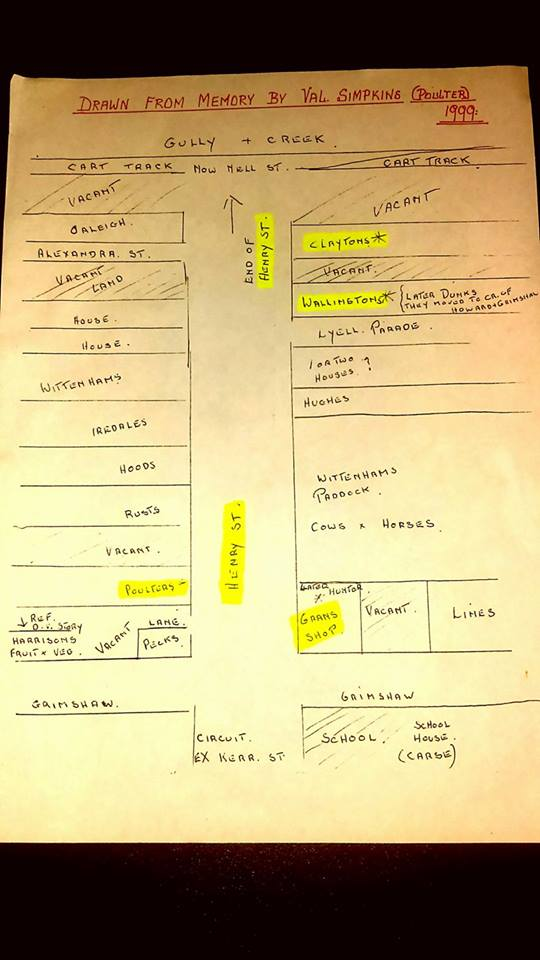 DRAWN FROM MEMORY BY VAL. SIMPKINS (POULTER)
1999.
GULLY + CREEK.
CART TRACK NOW NELL ST. CART TRACK
VACANT
RALEIGH.
ALEXANDRA. ST.
VACANT
LAND
HOUSE.
HOUSE.
WITTENHAMS
IREDALES
HOODS
RUSTS
VACANT.
POULTERS *
REF.
STORY
HARRISONS
FRUIT & VEG.
VACANT
LANE.
PECKS.
GRIMSHAW.
END OF
HENRY ST.
HENRY ST.
CIRCUIT.
EX KERR. ST
VACANT
CLAYTONS *
VACANT.
WALLINGTONS *
{LATER DUNKS
THEY MOVED TO CR. OF
HOWARD & GRIMSHAW
LYELL. PARADE.
1 OR TWO ?
HOUSES ?
HUGHES
WITTENHAMS
PADDOCK.
COWS & HORSES.
LATER
* HUNTER.
GRANS
SHOP.
VACANT.
LINES
GRIMSHAW
SCHOOL.
SCHOOL
HOUSE.
(CARSE)